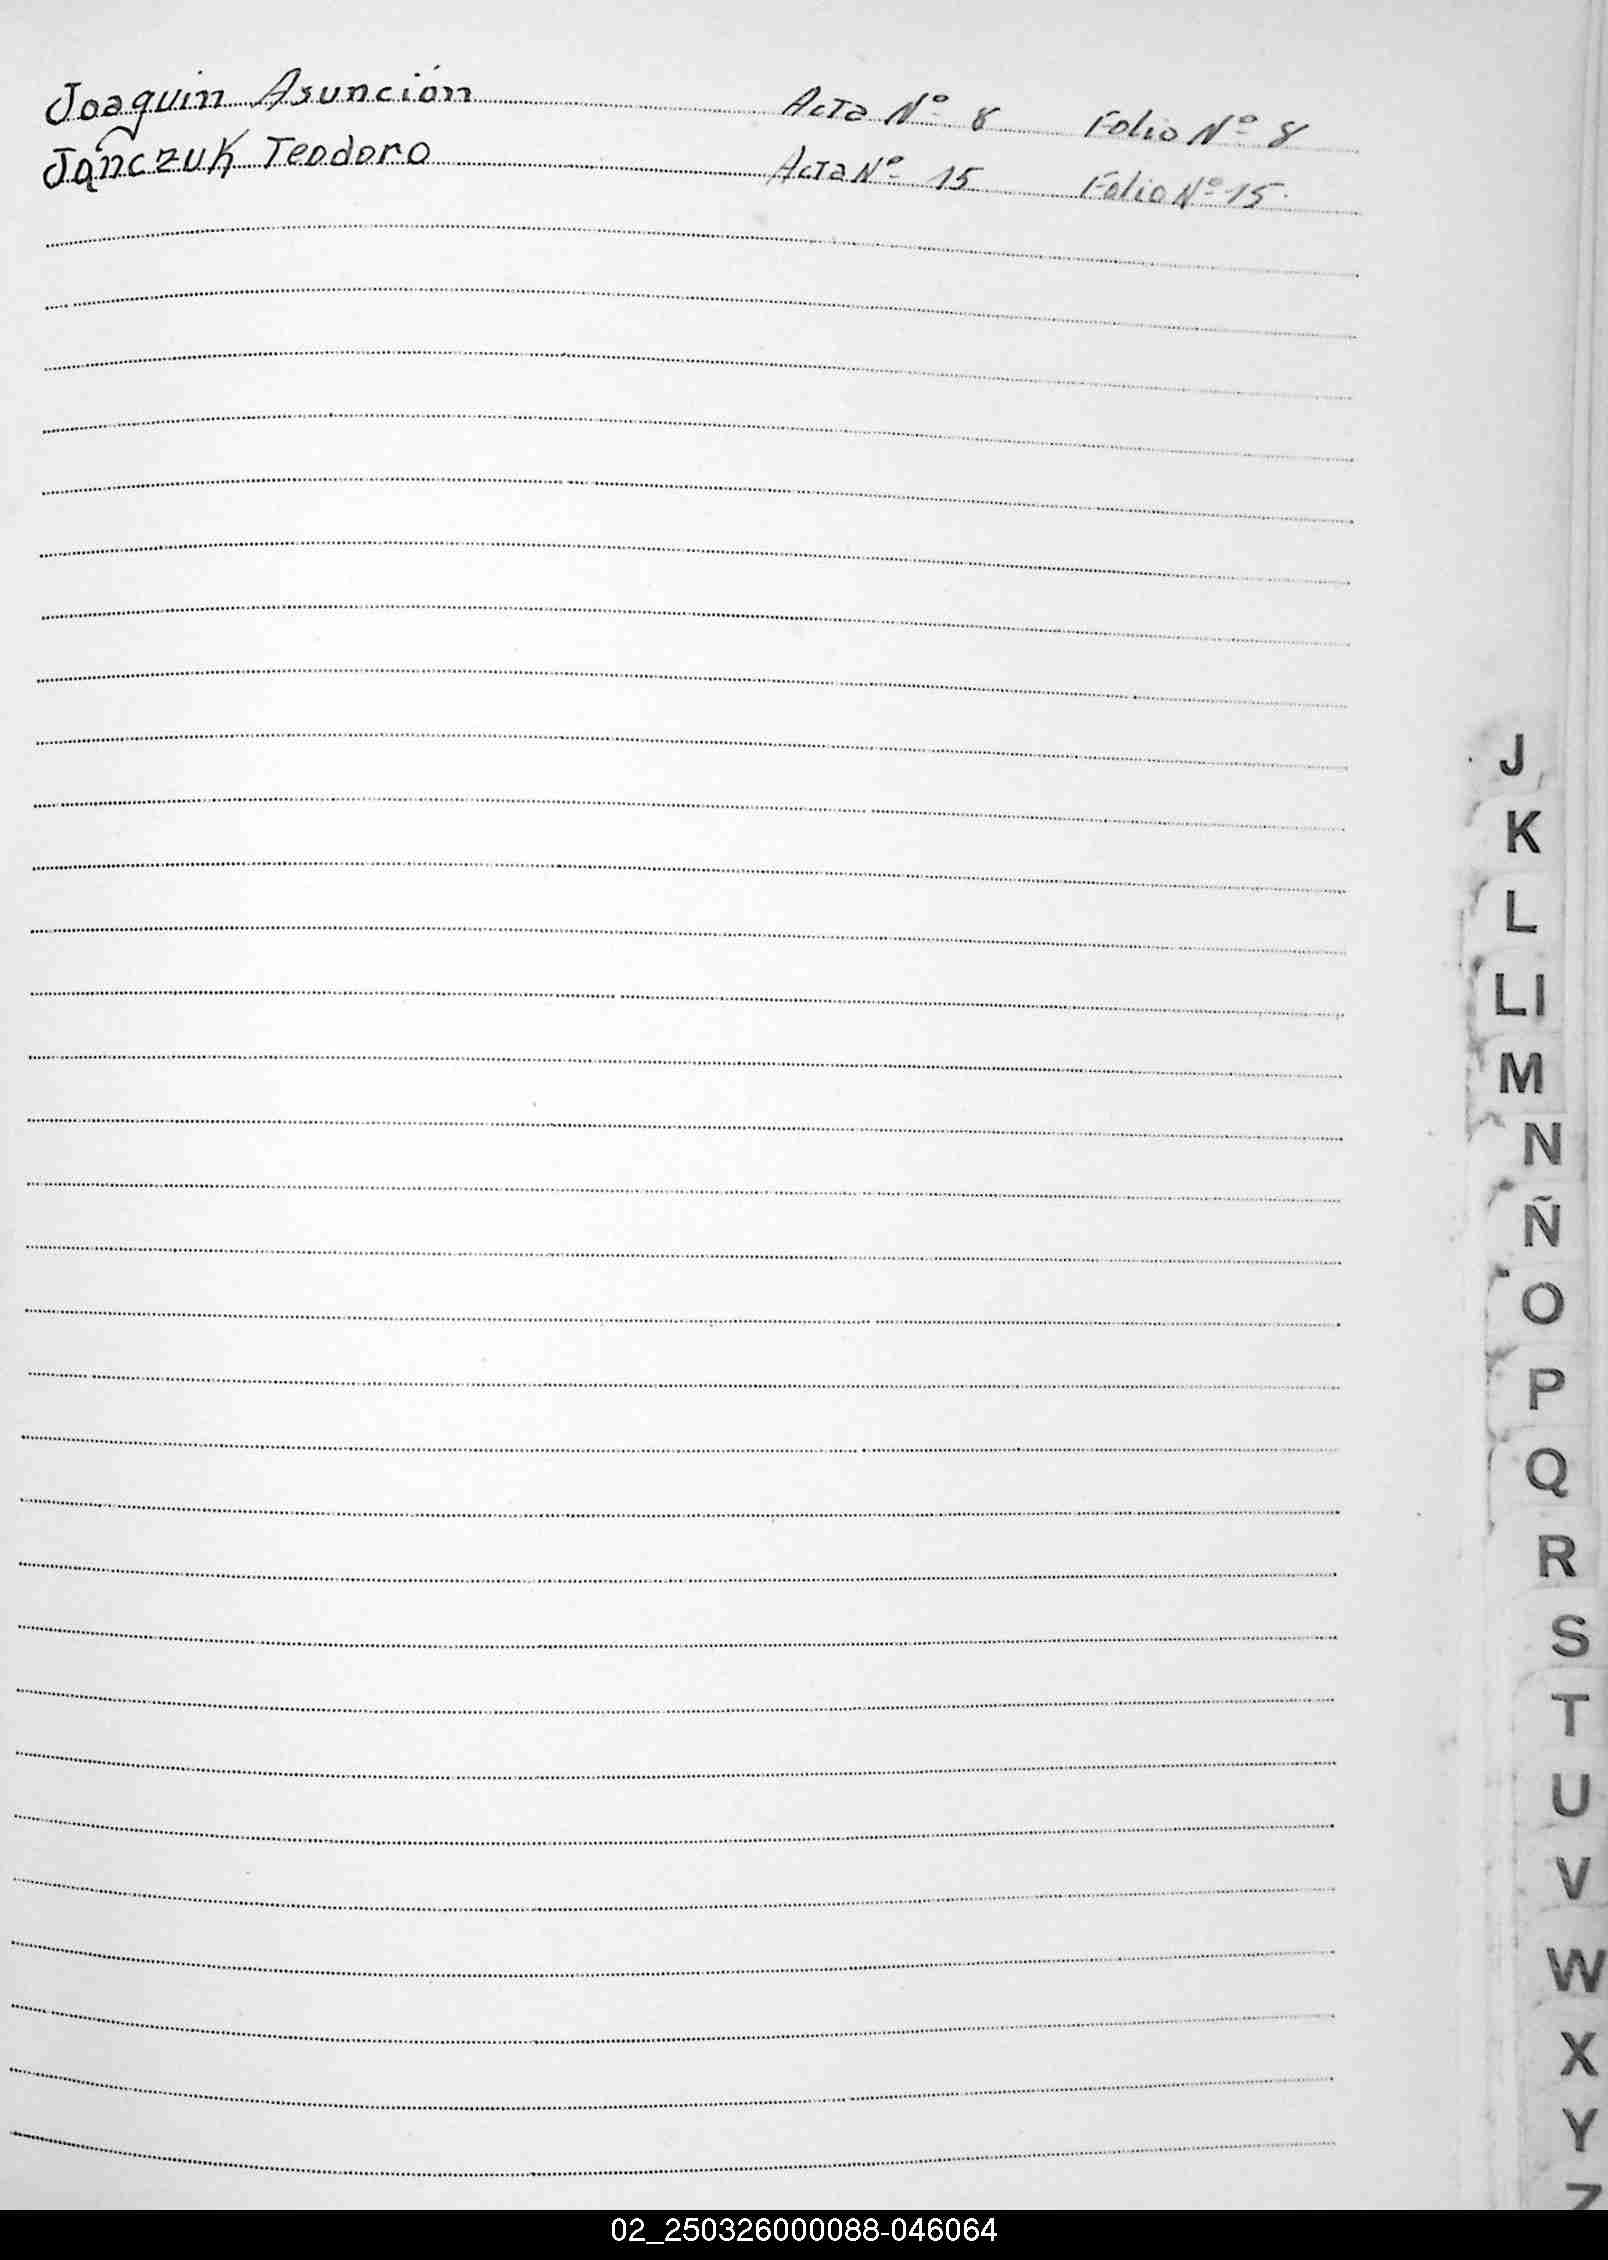 Joaquin Asunción Acta Nº 8 Folio Nº 8
Janczuk Teodoro Acta Nº 15 Folio Nº 15
J
K
L
Ll
M
N
Ñ
O
P
Q
R
S
T
U
V
W
X
Y
Z
02_250326000088-046064